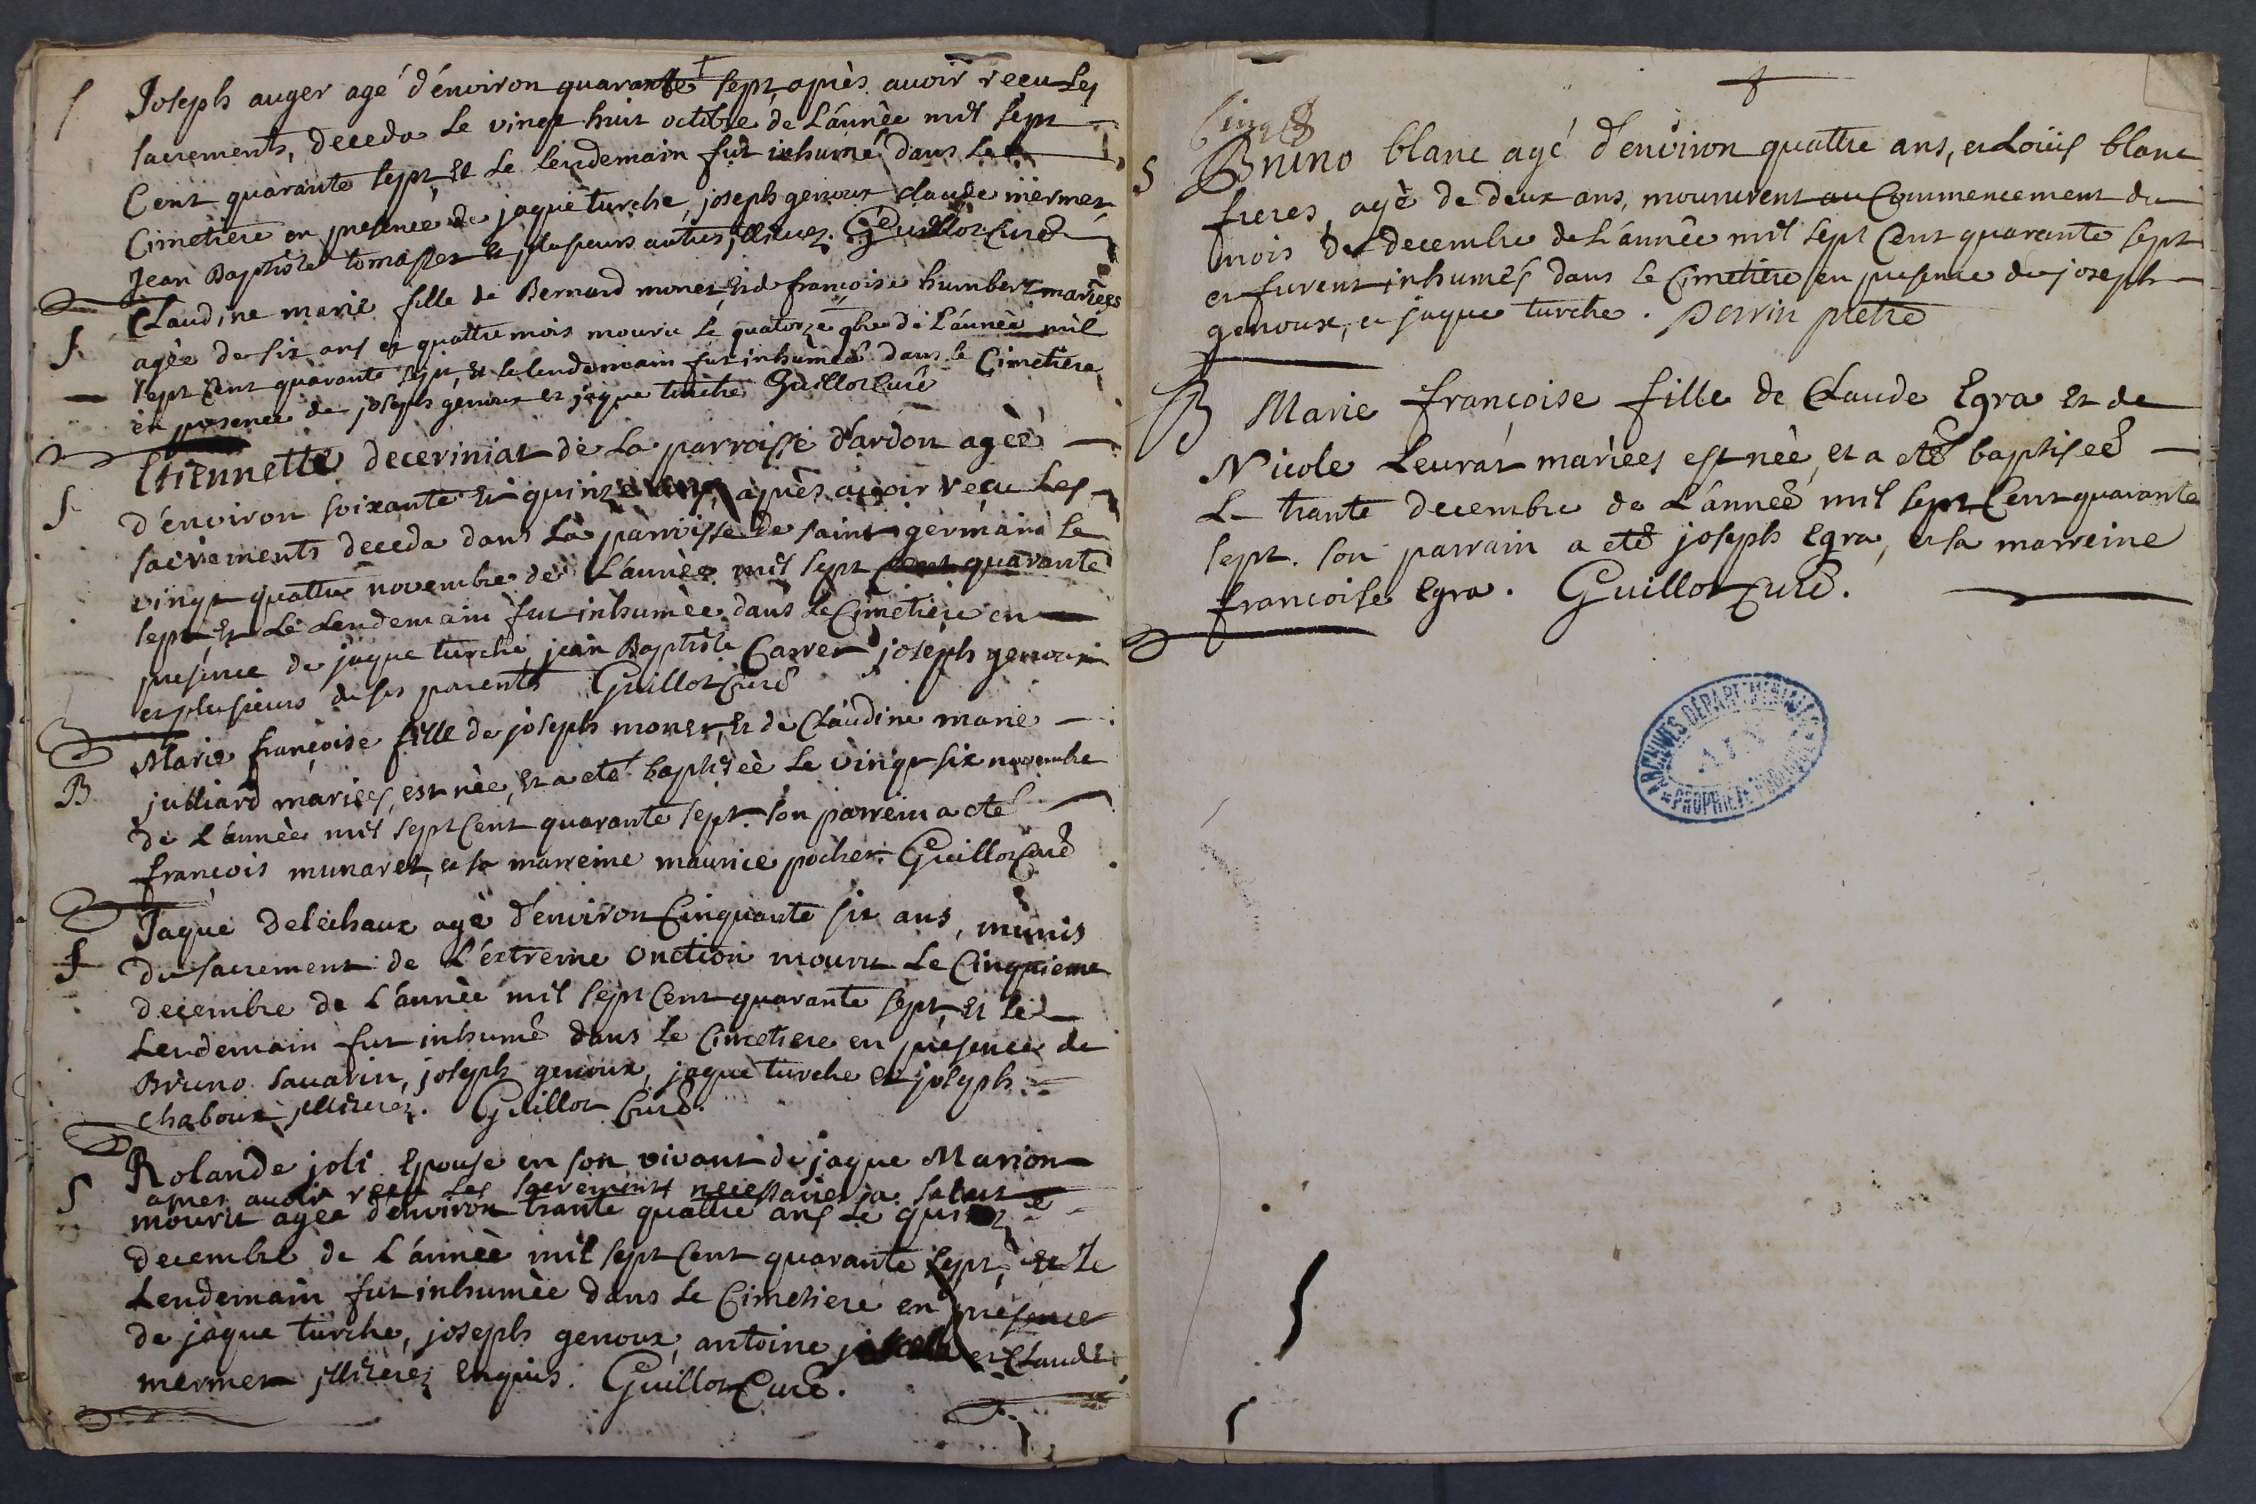 S Joseph auger agé d'énviron quarante sept, après avoir reçu les
sacrements, deceda le vingt huit octobre de L'ánnèe mil sept
Cent quarante sept, et le lendemain fut inhumé dans le
Cimetiere en presence de jaque turche, joseph genoux claude mermet
Jean Baptiste tomasset et plusieurs autres, illiterez. Guillot Curé
S Claudine marie fille de Bernard monet, et de françoise humbert mariées
agèe de six ans et quattre mois mourut le quatorze 9bre de L'ánnèe mil
sept Cent quarante sept, et le lendemain fut inhumèe dans le Cimetiere
en presence de joseph genoux et jaque turche Guillot Curé
S Etiennette deceriniat de La parroisse d'ardon agèe
d'énviron soixante et quinze ans, après avoir reçu Les
sacrements deceda dans La parroisse de saint germain Le
vingt quattre novembre de L'ánnèe mil sept Cent quarante
sept, et Le Lendemain fut inhumèe dans Le Cimetiere en
presence de jaque turche, jean Baptiste Carret joseph genoux
et plusieurs de ses parents Guillot Curé
B Marie françoise fille de joseph monet, et de Claudine marie
julliard mariées, est nèe, et a eté baptisèe Le vingt six novembre
de L'ánnèe mil sept Cent quarante sept. son parrein a eté
françois munaret, et sa marreine maurice pochet. Guillot Curé
S Jaque deléchaux agè d'énviron Cinquante six ans, munis
du sacrement de L'éxtreme onction mourut Le Cinquieme
decembre de L'ánnèe mil sept Cent quarante sept, et le
Lendemain fut inhumé dans le Cimetiere en presence de
Bruno savarin, joseph genoux, jaque turche et joseph
chaboux illiterez. Guillot Curé.
S Rolande joli Epouse en son vivant de jaque Marion
apres avoir reçu Les sacrements necessaires a salut
mourut agée d'énviron trante quattre ans Le quinze
decembre de L'ánnèe mil sept Cent quarante sept, et Le
Lendemain fut inhumèe dans Le Cimetiere en presence
de jaque turche, joseph genoux, antoine et Claude
mermet illiterez enquis. Guillot Curé.
S Bruno blanc agé d'énviron quattre ans, et Loüis blanc
freres, agè de deux ans, moururent au Commencement du
mois de decembre de L'ánnèe mil sept Cent quarante sept
et furent inhumés dans le Cimetiere en presence de joseph
genoux, et jaque turche. Perrin pretre
B Marie françoise fille de Claude Egra et de
Nicole Leurat mariées est nèe, et a eté baptiseé
Le trante decembre de L'ánneé mil sept Cent quarante
sept. son parrain a eté joseph Egra, et sa marreine
francoise Egra. Guillot Curé.
ARCHIVES DÉPARTEMENTALES
AIN
PROPRIÉTÉ PUBLIQUE